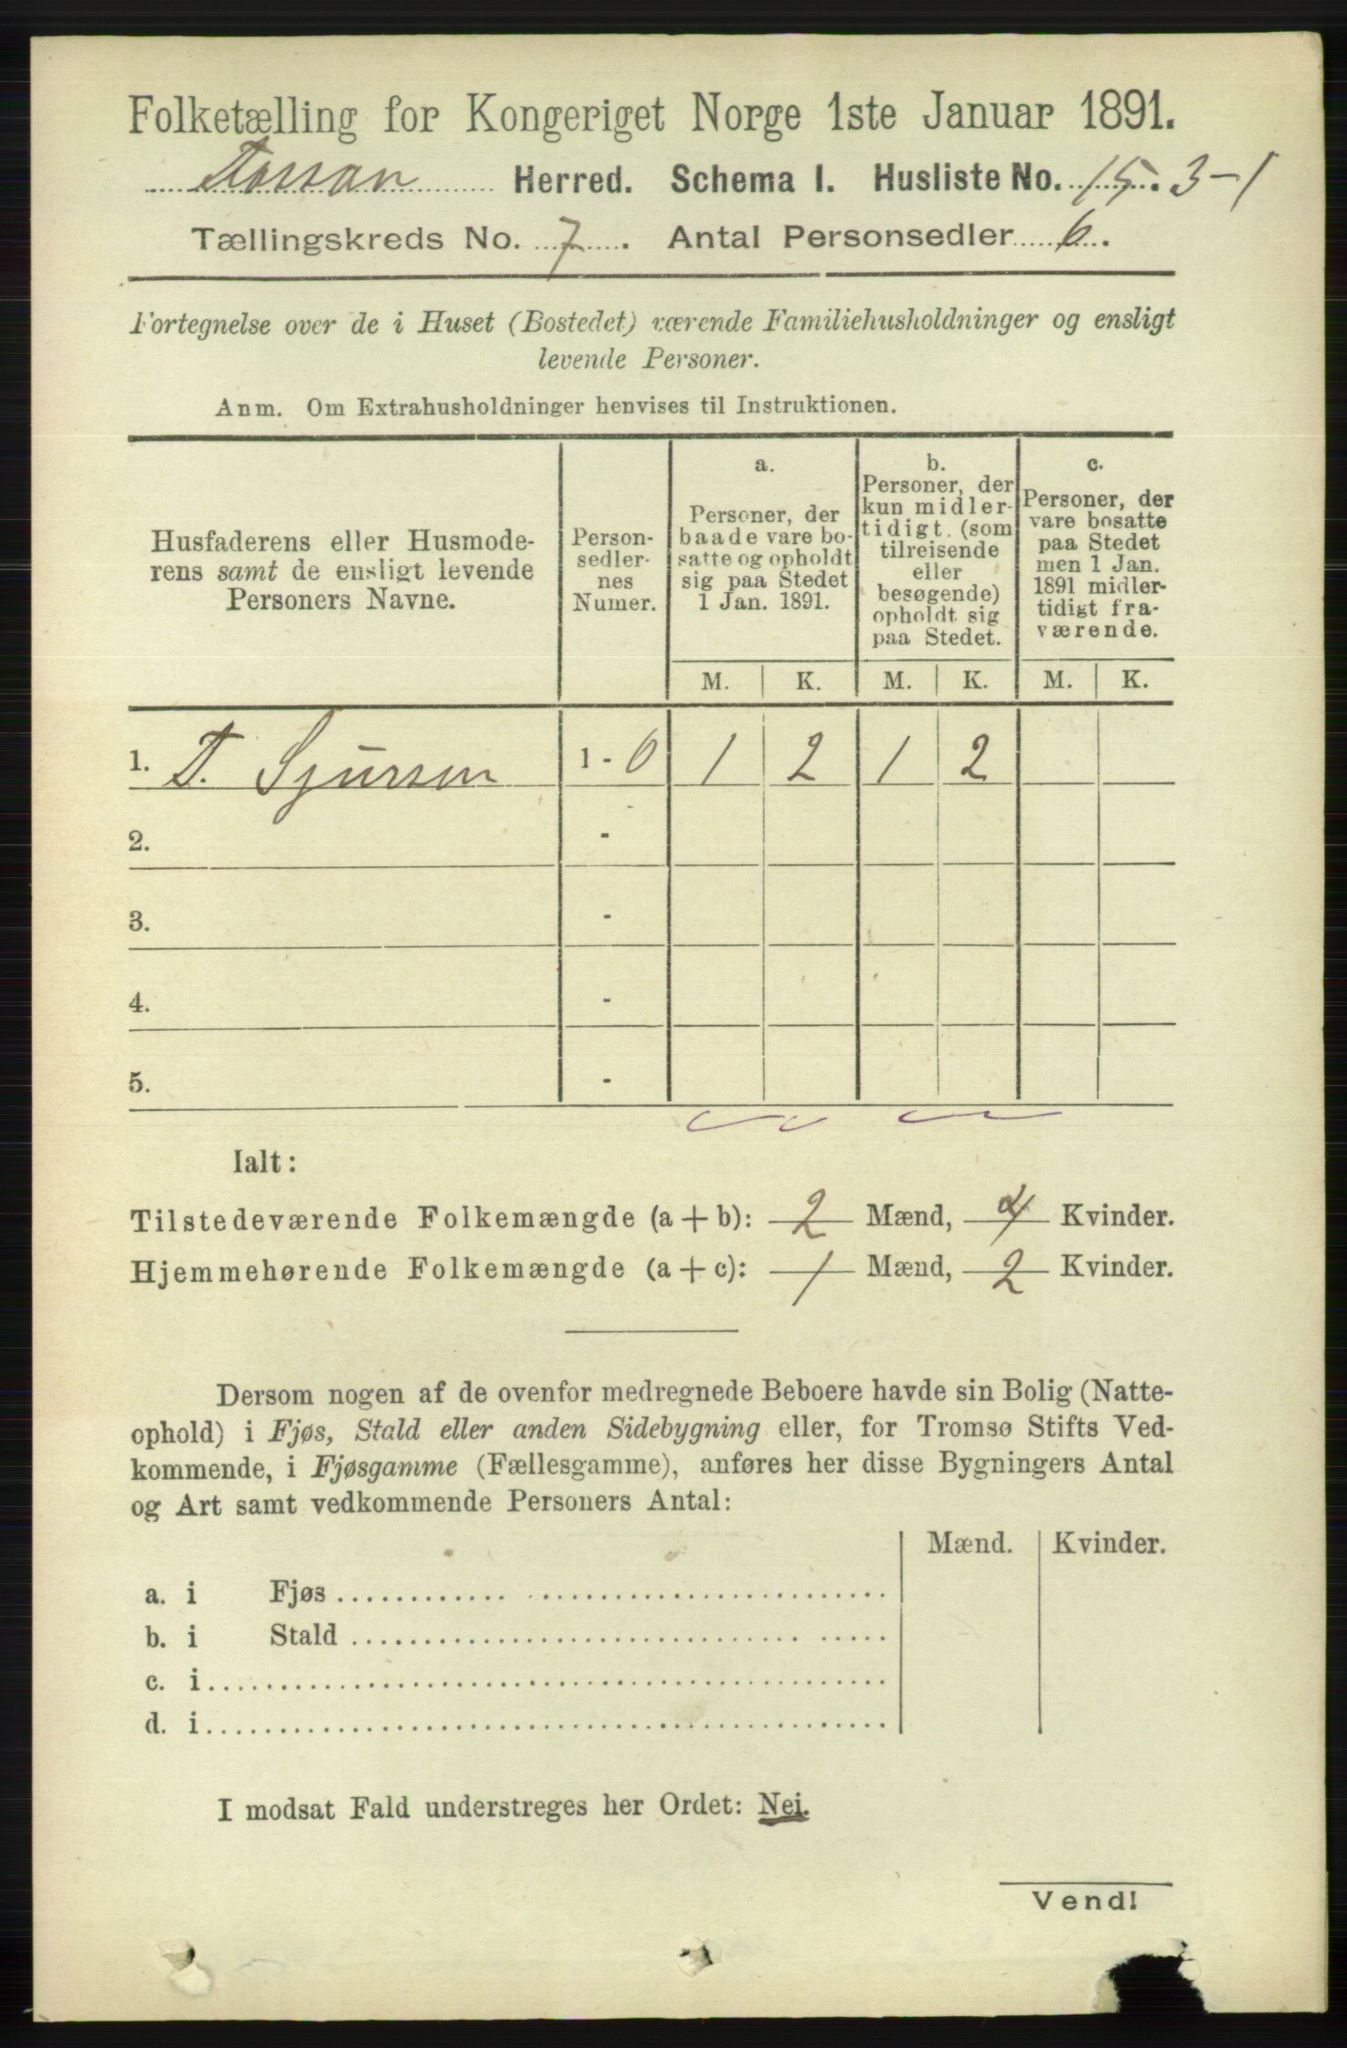 Folketælling for Kongeriget Norge 1ste Januar 1891.
Torsan Herred. Schema I. Husliste No. 15. 3-1
Tællingskreds No. 7. Antal Personsedler 6.
Fortegnelse over de i Huset (Bostedet) værende Familiehusholdninger og ensligt
levende Personer.
Anm. Om Extrahusholdninger henvises til Instruktionen.
Husfaderens eller Husmode-
rens samt de ensligt levende
Personers Navne.
Person-
sedler-
nes
Numer.
a.
Personer, der
baade vare bo-
satte og opholdt
sig paa Stedet
1 Jan. 1891.
b.
Personer, der
kun midler-
tidigt (som
tilreisende
eller
besøgende)
opholdt sig
paa Stedet.
c.
Personer, der
vare bosatte
paa Stedet
men 1 Jan.
1891 midler-
tidigt fra-
værende.
M. K. M. K. M. K.
1. T. Sjursen 1 - 6 1 2 1 2
2. -
3. -
4. -
5. -
Ialt:
Tilstedeværende Folkemængde (a + b): 2 Mænd, 4 Kvinder.
Hjemmehørende Folkemængde (a + c): 1 Mænd, 2 Kvinder.
Dersom nogen af de ovenfor medregnede Beboere havde sin Bolig (Natte-
ophold) i Fjøs, Stald eller anden Sidebygning eller, for Tromsø Stifts Ved-
kommende, i Fjøsgamme (Fællesgamme), anføres her disse Bygningers Antal
og Art samt vedkommende Personers Antal:
Mænd. Kvinder.
a. i Fjøs
b. i Stald
c. i
d. i
I modsat Fald understreges her Ordet: Nei.
Vend!